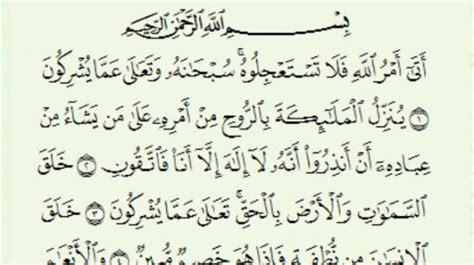 بِسْمِ ٱللَّهِ ٱلرَّحْمَٰنِ ٱلرَّحِيمِ
أَتَىٰٓ أَمْرُ ٱللَّهِ فَلَا تَسْتَعْجِلُوهُ ۚ سُبْحَٰنَهُۥ وَتَعَٰلَىٰ عَمَّا يُشْرِكُونَ
١ يُنَزِّلُ ٱلْمَلَٰٓئِكَةَ بِٱلرُّوحِ مِنْ أَمْرِهِۦ عَلَىٰ مَن يَشَآءُ مِنْ
عِبَادِهِۦٓ أَنْ أَنذِرُوٓا۟ أَنَّهُۥ لَآ إِلَٰهَ إِلَّآ أَنَا۠ فَٱتَّقُونِ ٢ خَلَقَ
ٱلسَّمَٰوَٰتِ وَٱلْأَرْضَ بِٱلْحَقِّ ۚ تَعَٰلَىٰ عَمَّا يُشْرِكُونَ ٣ خَلَقَ
ٱلْإِنسَٰنَ مِن نُّطْفَةٍ فَإِذَا هُوَ خَصِيمٌ مُّبِينٌ ٤ وَٱلْأَنْعَٰمَ